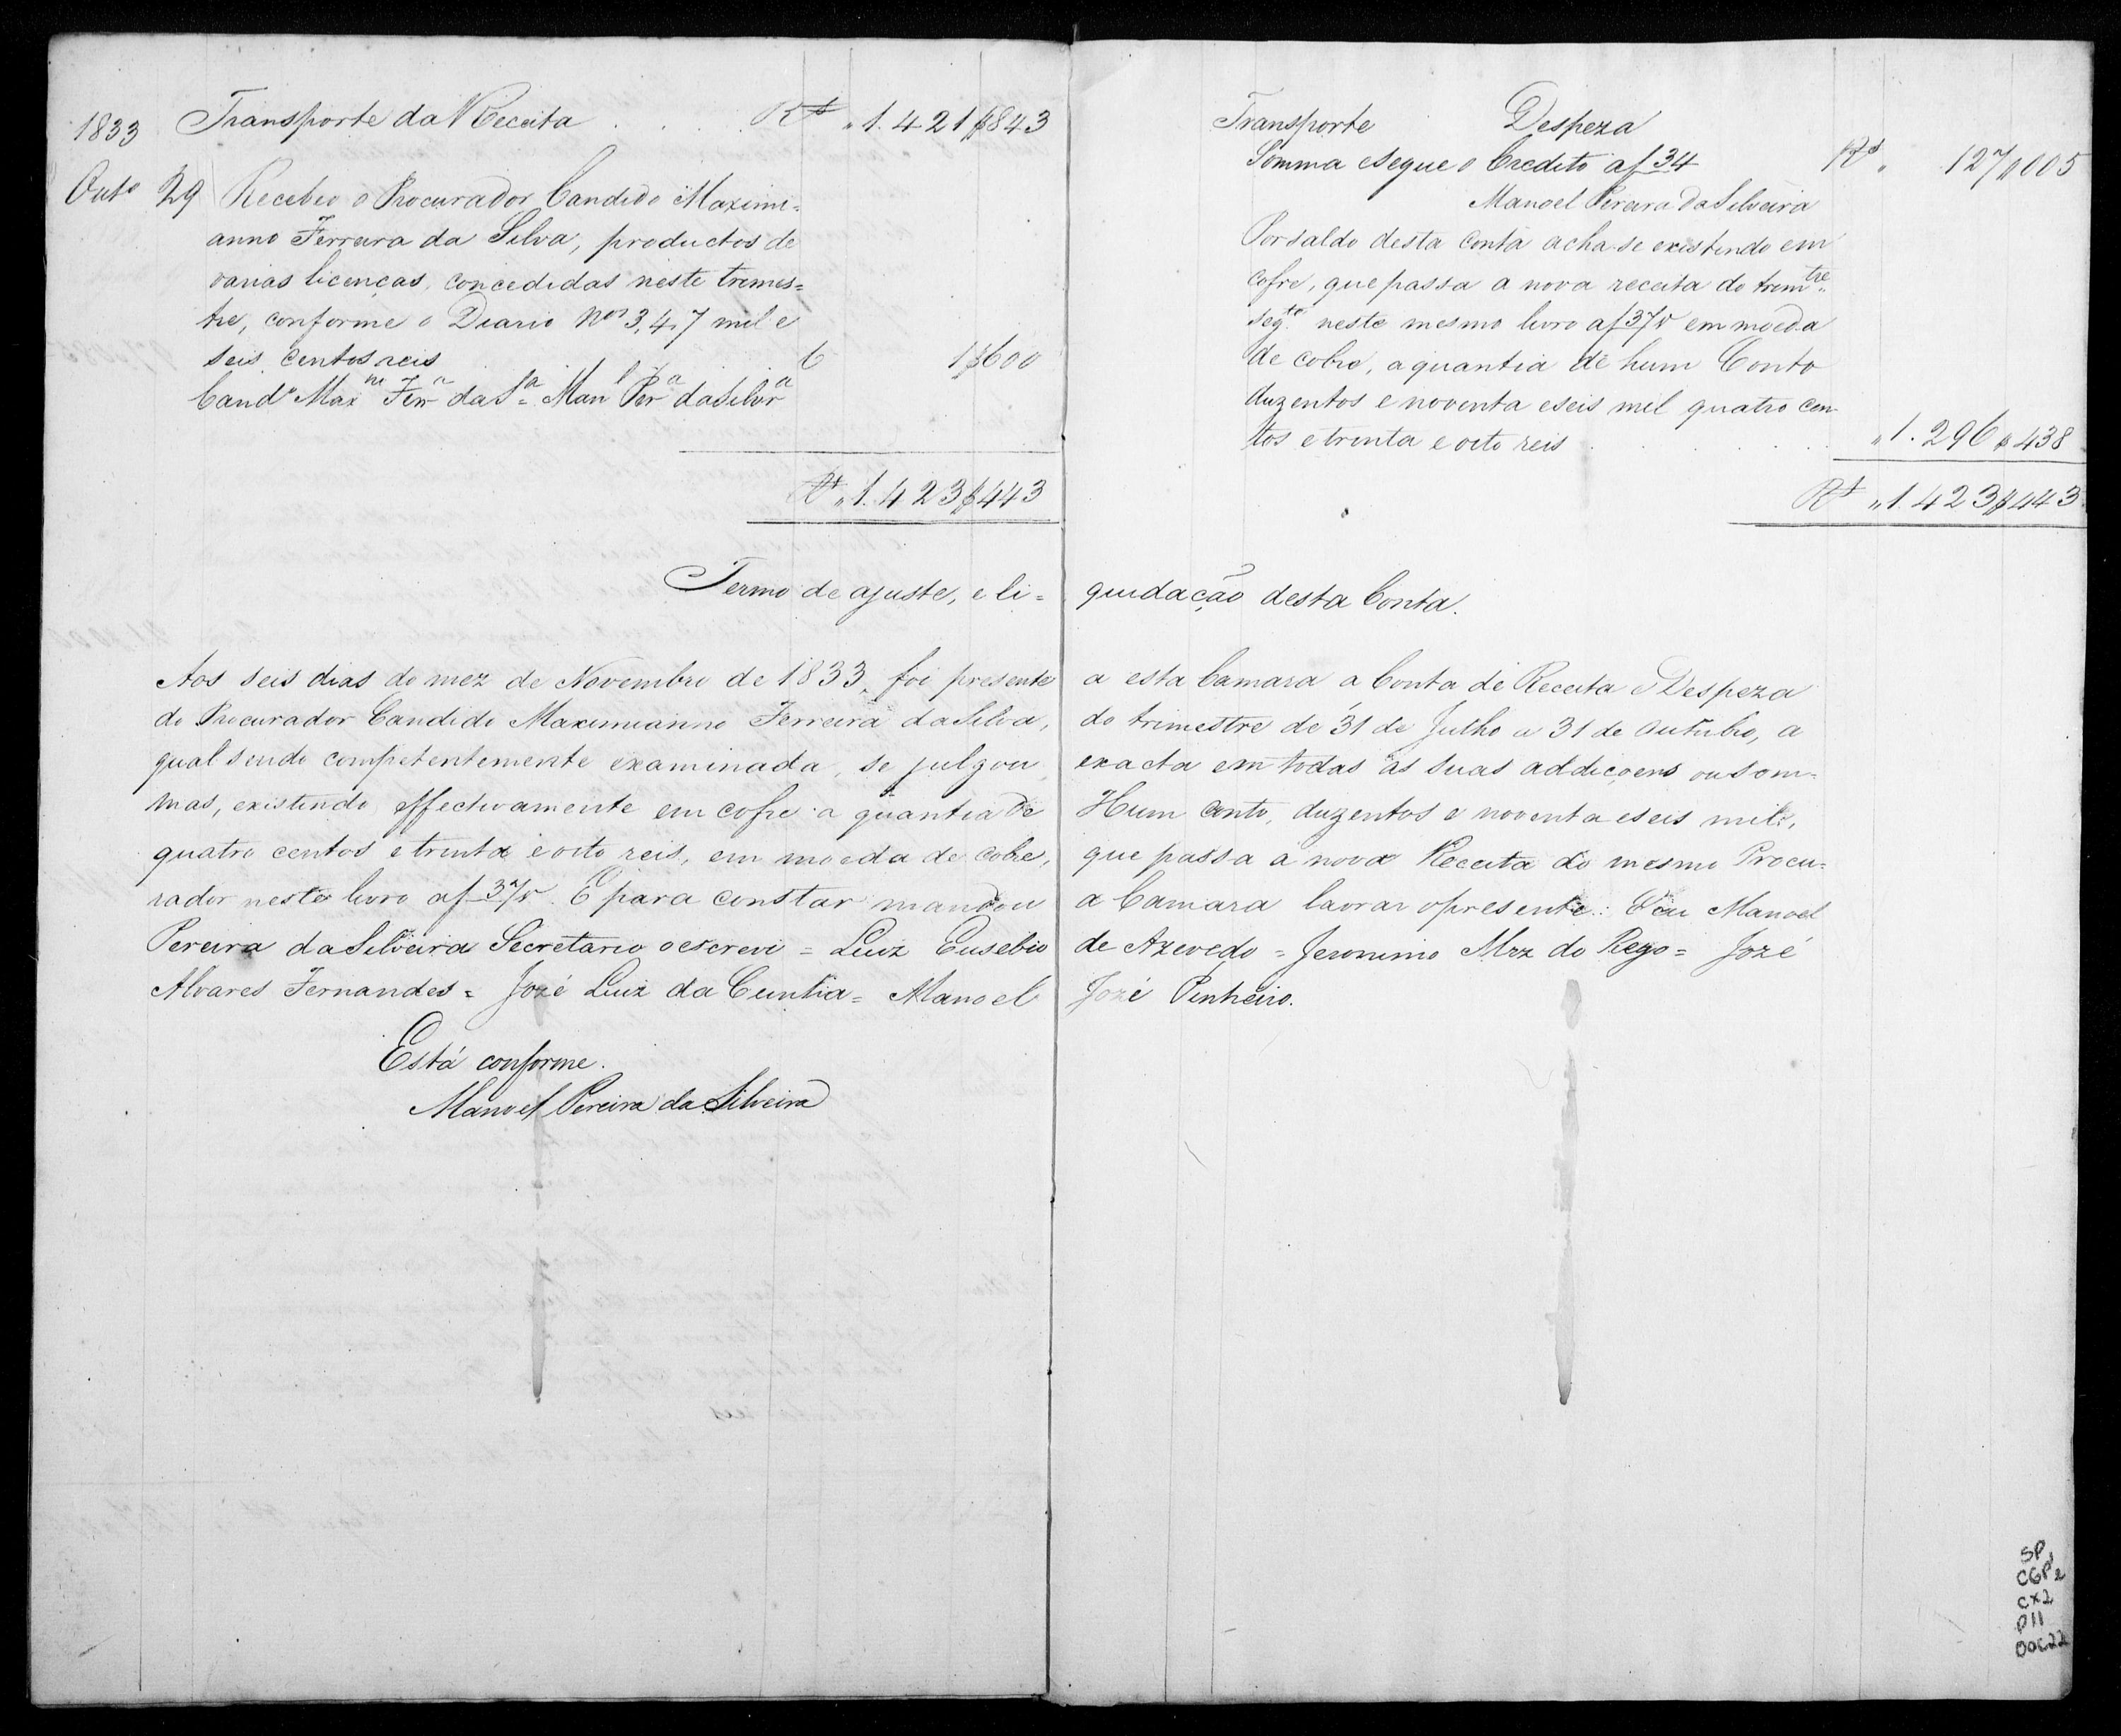 1833 Transporte da Receita . . . . R$ „ 1.421$843
Outo 29 Recebeo o Procurador Candido Maximi=
anno Ferreira da Silva, productos de
varias licenças, concedidas neste trimes=
tre, conforme o Diario Nos 3, 4, 7 mil e
seis centos reis 6 1$600
Cando Maxmo Ferra da Sa = Manl Pera da Silvra
Rs „ 1.423$443
Transporte Despeza
Somma e segue o Credito a f 34 Rs „ 127$005
Manoel Pereira da Silveira
Por saldo desta conta acha-se existindo em
cofre, que passa a nova receita do trimtre
segte neste mesmo livro a f 37v em moeda
de cobre, a quantia de hum Conto
duzentos e noventa e seis mil quatro cen
tos e trinta e oito reis . . . . „ 1.296$438
Rs „ 1.423$443
Termo de ajuste, e li= quidação desta Conta.
Aos seis dias do mez de Novembro de 1833, foi presente a esta Camara a Conta de Receita e Despeza
do Procurador Candido Maximianno Ferreira da Silva, do trimestre de 31 de Julho a 31 de Outubro, a
qual sendo competentemente examinada, se julgou exacta em todas as suas addiçoens ou som=
mas, existindo effectivamente em cofre a quantia de Hum conto, duzentos e noventa e seis mil,
quatro centos e trinta e oito reis, em moeda de cobre, que passa a nova Receita do mesmo Procu=
rador neste livro a f 37v. E para constar mandou a Camara lavrar o presente: E eu Manoel
Pereira da Silveira Secretario o escrevi = Luiz Eusebio de Azevedo = Jeronimo Mrz do Rego = Jozé
Alvares Fernandes = Jozé Luiz da Cunha = Manoel Jozé Pinheiro.
Está conforme.
Manoel Pereira da Silveira
SP
CGP2
CX2
P11
DOC22